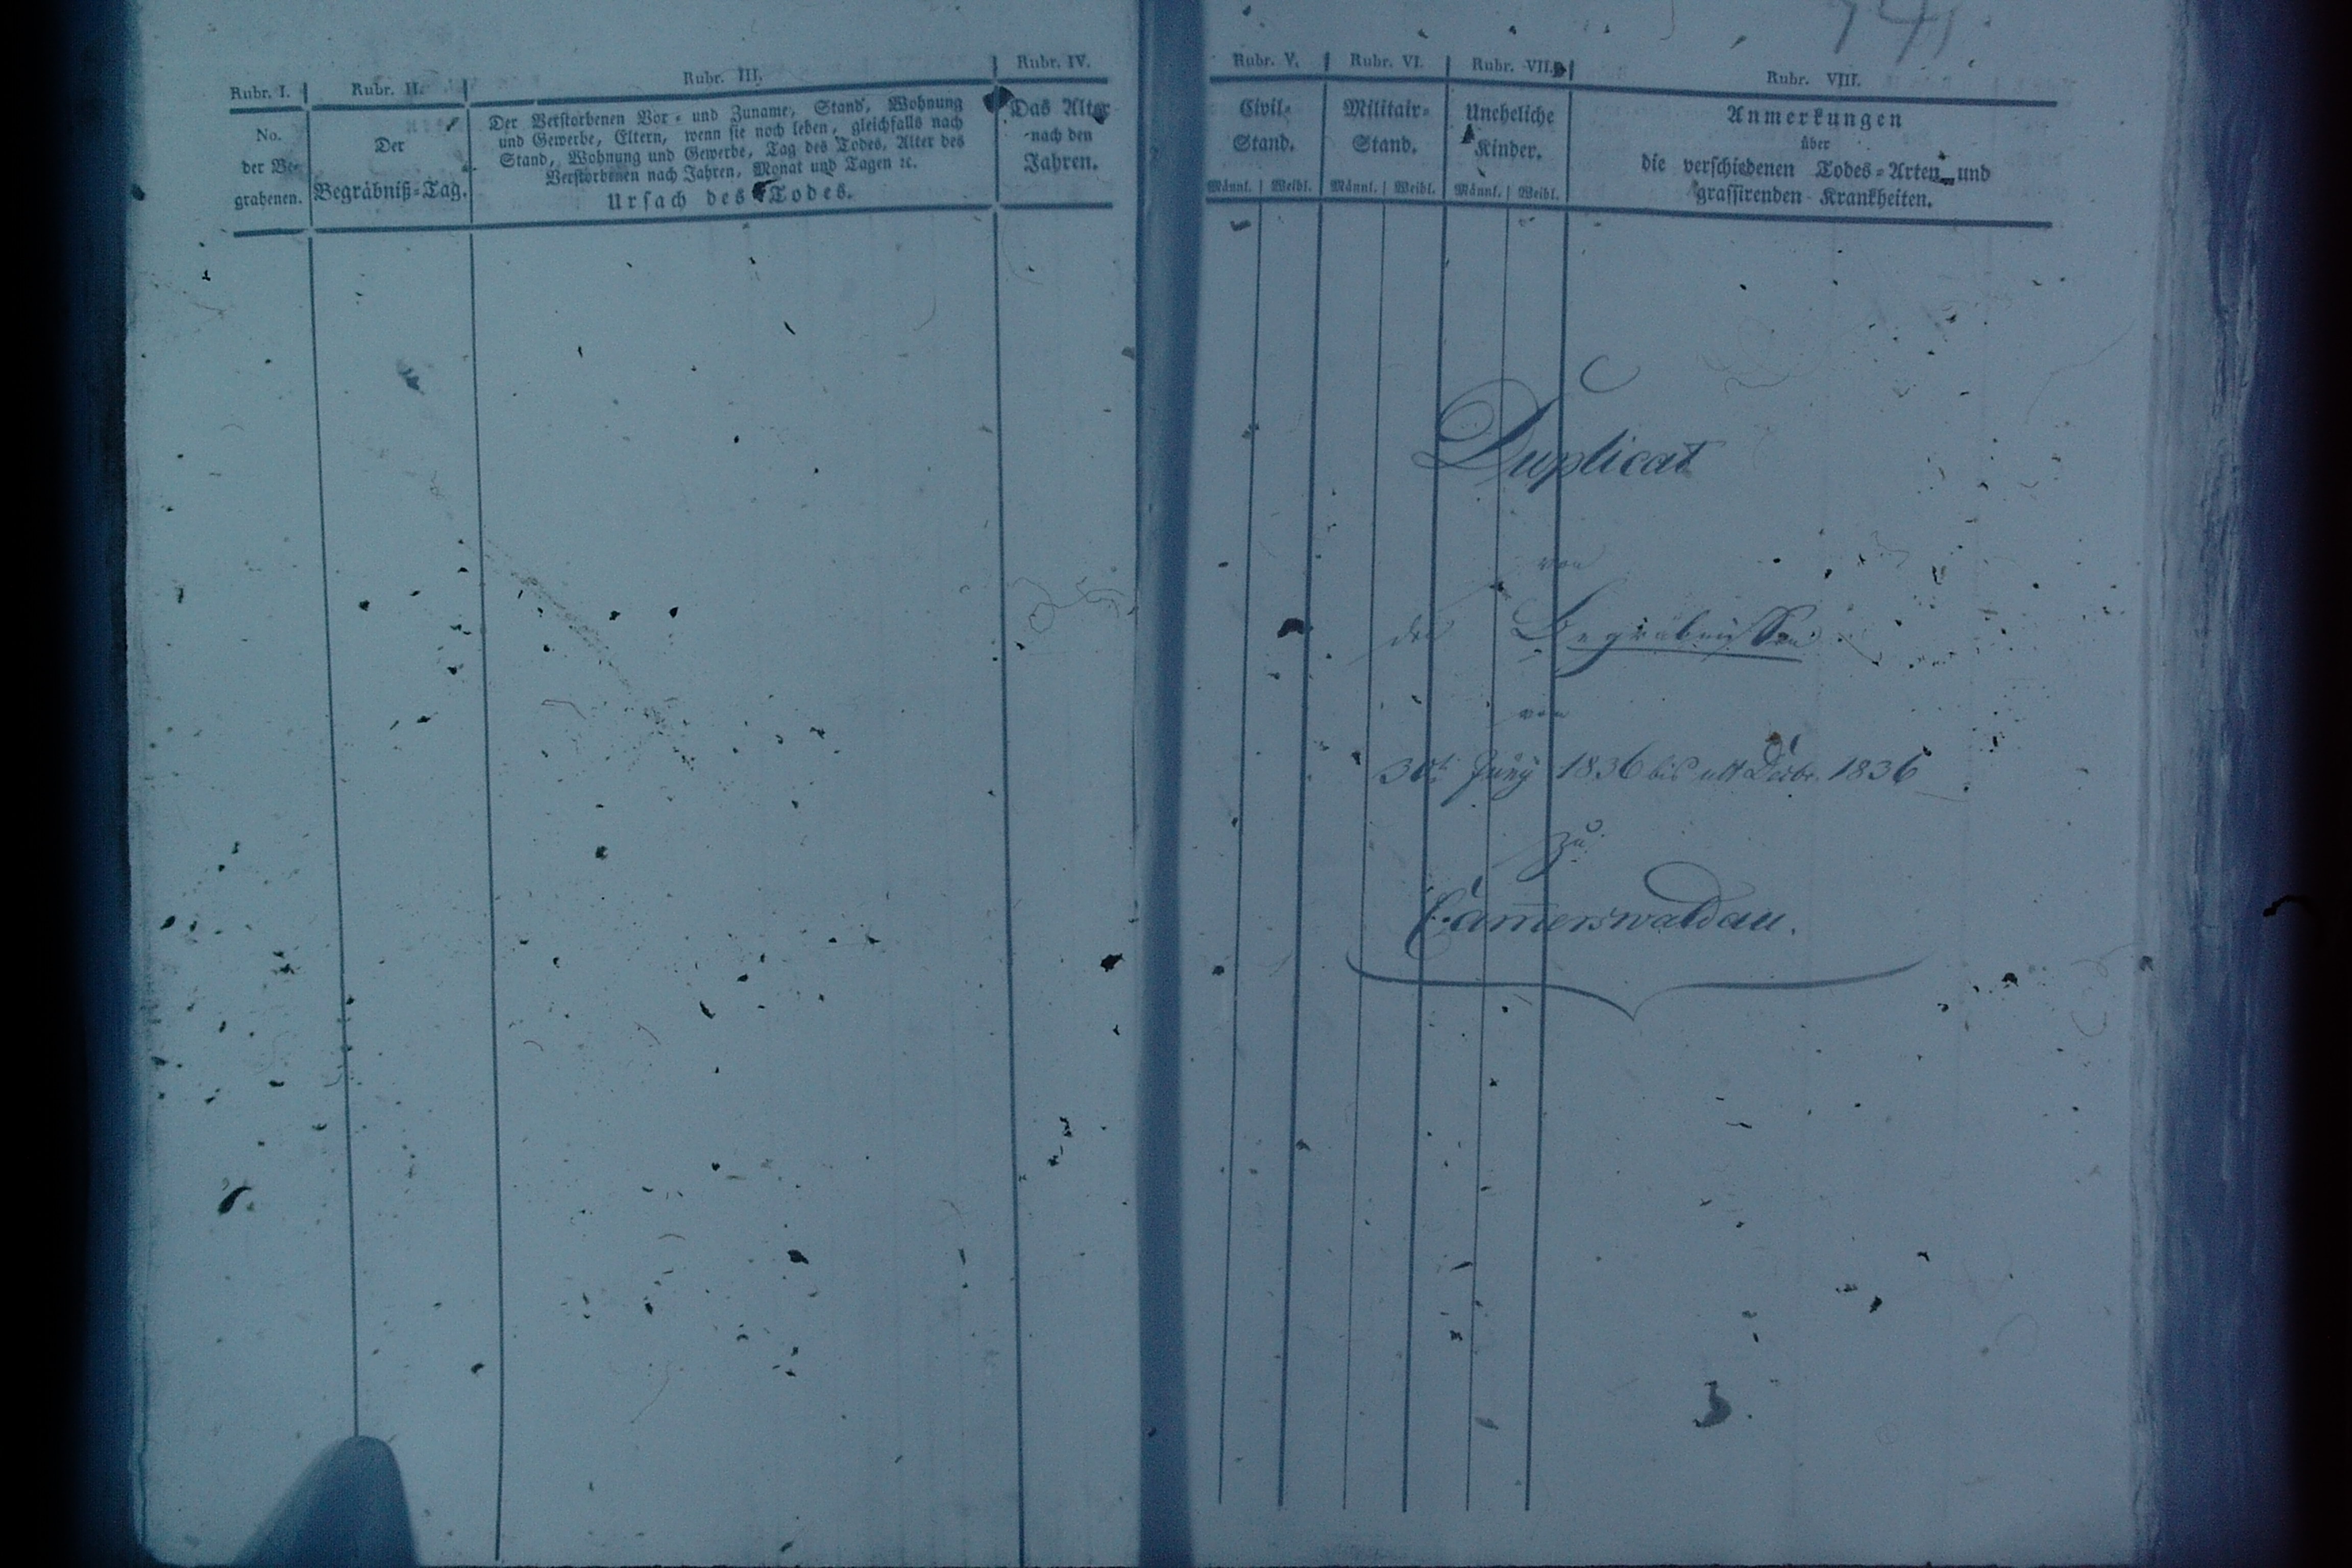 Rubr. I.
No.
der Be-
grabenen.
Rubr. II.
Der
Begräbniß-Tag.
Rubr. III.
Der Verstorbenen Vor- und Zuname, Stand, Wohnung
und Gewerbe, Eltern, wenn sie noch leben, gleichfalls nach
Stand, Wohnung und Gewerbe, Tag des Todes, Alter des
Verstorbenen nach Jahren, Monat und Tagen ꝛc.
Ursach des Todes.
Rubr. IV.
Das Alter
nach den
Jahren.
Rubr. V.
Civil-
Stand.
Männl. Weibl.
Rubr. VI.
Militair-
Stand.
Männl. Weibl.
Rubr. VII.
Uneheliche
Kinder.
Männl. Weibl.
Rubr. VIII.
Anmerkungen
über
die verschiedenen Todes-Arten und
grassirenden Krankheiten.
Duplicat
von
den Begräbnissen
vom
30t Juny 1836 bis ult Decbr. 1836
zu
Cam̅erswaldau.